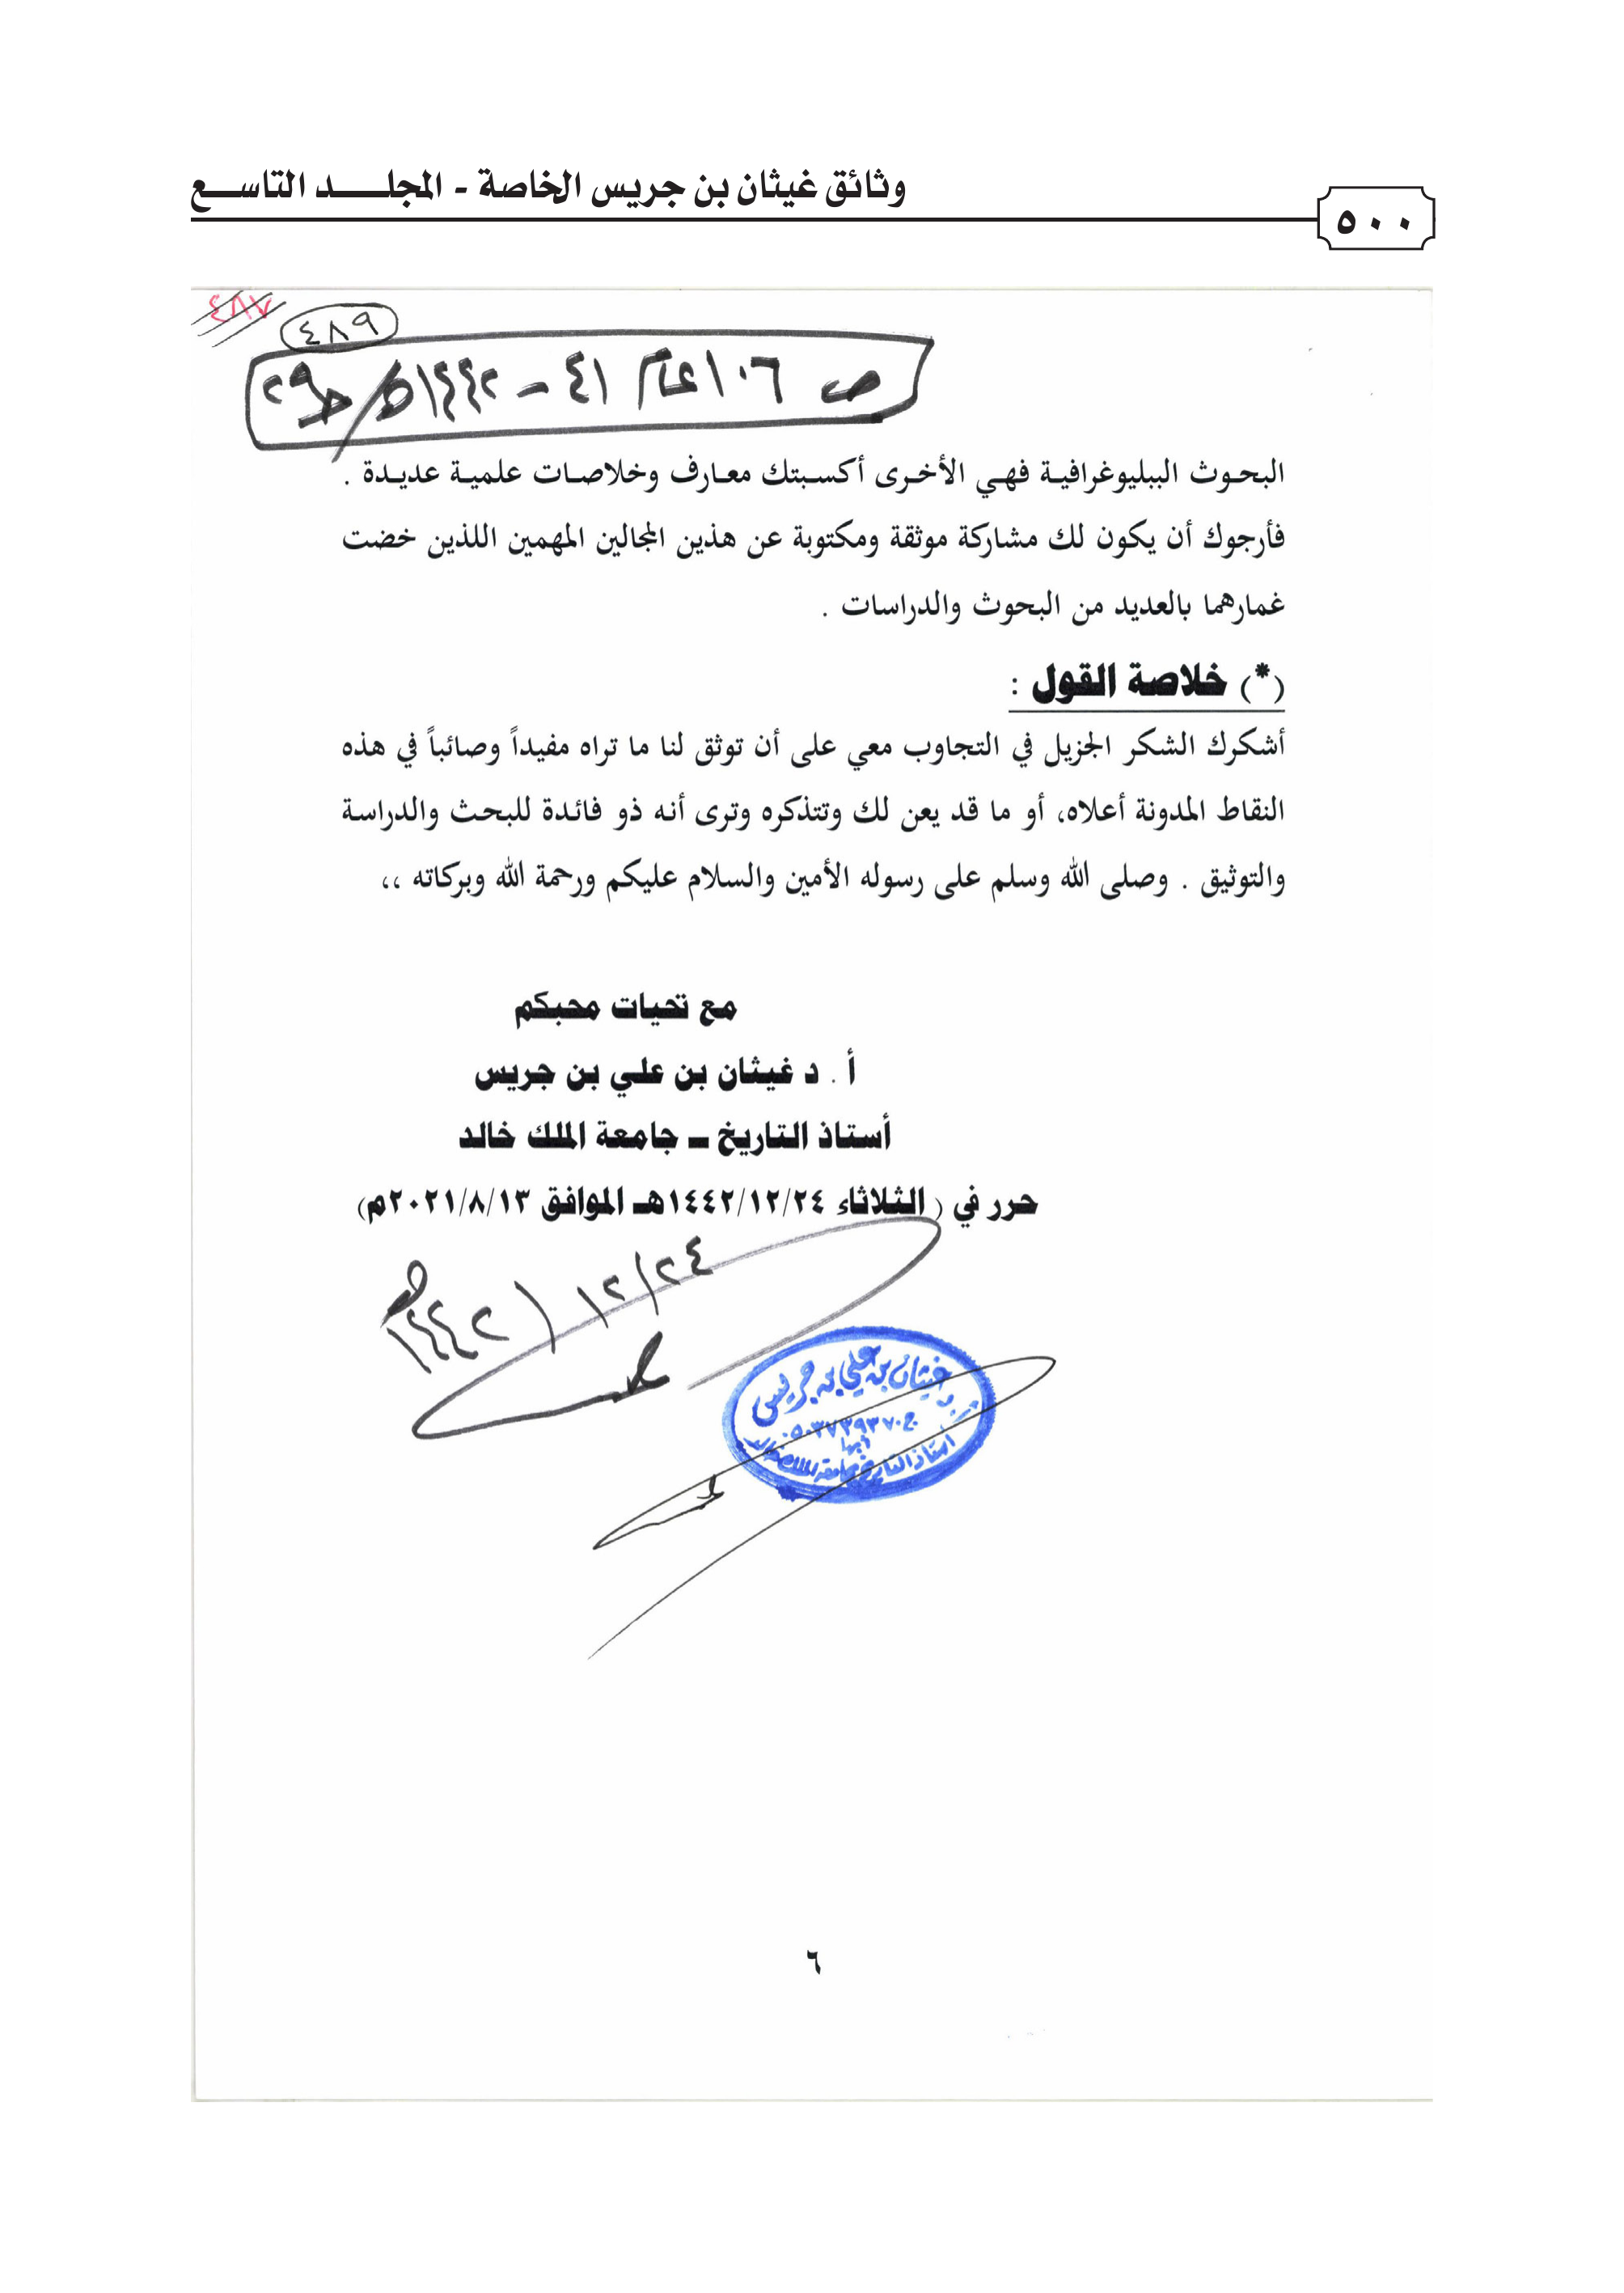 وثائق غيثان بن جريس الخاصة - المجلـــــد التاســـع
٥٠٠
٤٨٧
٤٨٩
ص ١٠٦ عام ٤١ - ١٤٤٢هـ / ح٢٩
البحوث الببليوغرافية فهي الأخرى أكسبتك معارف وخلاصات علمية عديدة .
فأرجوك أن يكون لك مشاركة موثقة ومكتوبة عن هذين المجالين المهمين اللذين خضت
غمارهما بالعديد من البحوث والدراسات .
(*) خلاصة القول :
أشكرك الشكر الجزيل في التجاوب معي على أن توثق لنا ما تراه مفيداً وصائباً في هذه
النقاط المدونة أعلاه، أو ما قد يعن لك وتتذكره وترى أنه ذو فائدة للبحث والدراسة
والتوثيق . وصلى الله وسلم على رسوله الأمين والسلام عليكم ورحمة الله وبركاته ،،
مع تحيات محبكم
أ . د غيثان بن علي بن جريس
أستاذ التاريخ ــ جامعة الملك خالد
حرر في ( الثلاثاء ١٤٤٢/١٢/٢٤هـ الموافق ٢٠٢١/٨/١٣م)
٢٤/ ١٢ / ١٤٤٢هـ
أ.د غيثان بن علي بن جريس
ج ٠٥٠٣٧٣٩٣٧٠
أبها
أستاذ التاريخ بجامعة الملك خالد
٦